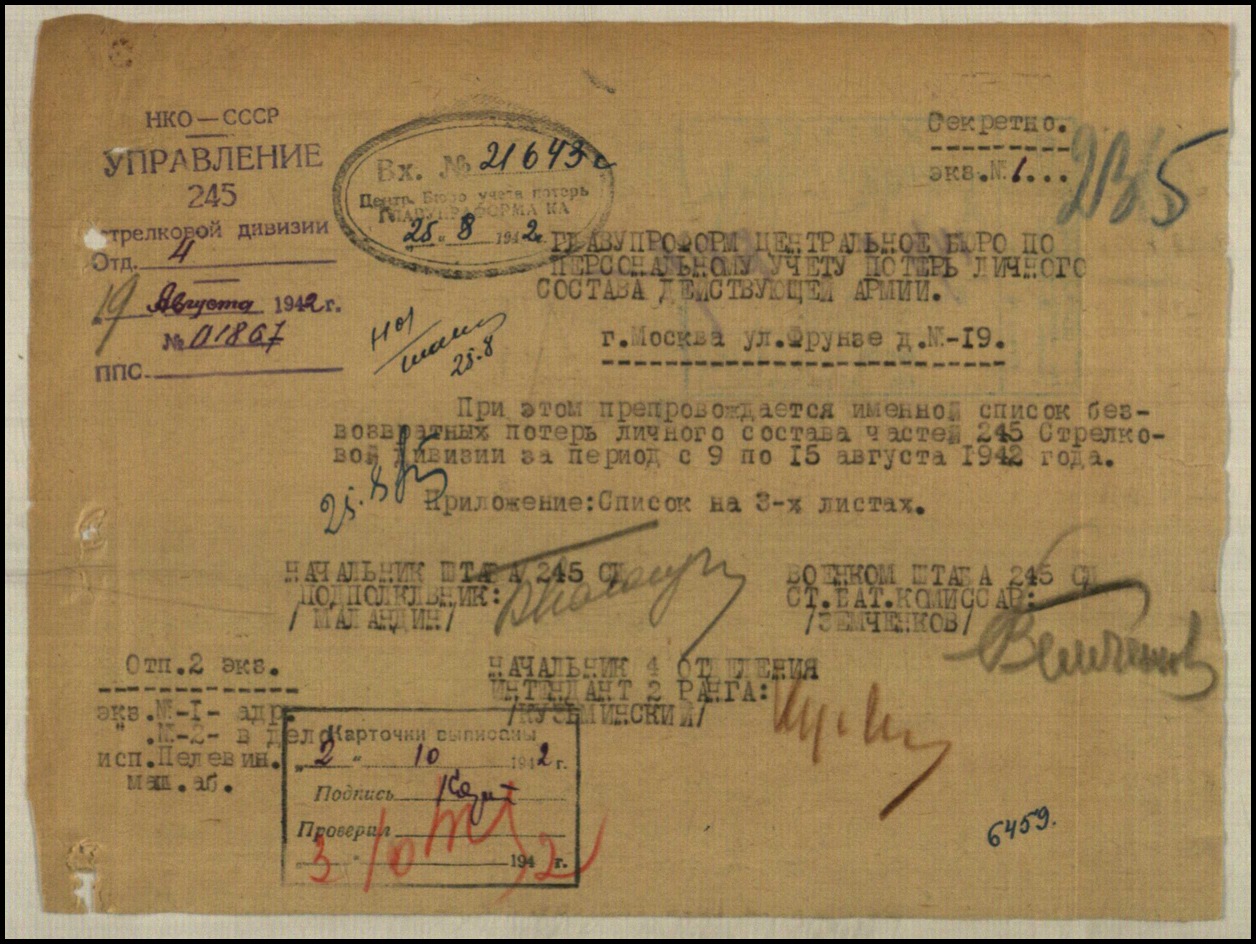 НКО — СССР
УПРАВЛЕНИЕ
245
стрелковой дивизии
Отд. 4
19 Августа 1942 г.
№ 01867
ППС
Вх. № 21643с
Центр. Бюро учета потерь
ГЛАВУПРАФОРМА КА
"25" 8 1942 г.
Секретно.
экз.№ 1...
25.8
ГЛАВУПРОФОРМ ЦЕНТРАЛЬНОЕ БЮРО ПО
ПЕРСОНАЛЬНОМУ УЧЕТУ ПОТЕРЬ ЛИЧНОГО
СОСТАВА ДЕЙСТВУЮЩЕЙ АРМИИ.
г.Москва ул.Фрунзе д.№-19.
При этом препровождается именной список без-
возвратных потерь личного состава частей 245 Стрелко-
вой дивизии за период с 9 по 15 августа 1942 года.
25.8
Приложение:Список на 3-х листах.
НАЧАЛЬНИК ШТАБА 245 СД
ПОДПОЛКВНИК:
/ МАЛАНДИН/
ВОЕНКОМ ШТАБА 245 СД
СТ.БАТ.КОМИССАР:
/ЗЕМЧЕНКОВ/
НАЧАЛЬНИК 4 ОТДЕЛЕНИЯ
ИНТЕНДАНТ 2 РАНГА:
/КУЗЬМИНСКИЙ/
Отп.2 экз.
экз.№-I- адр.
" .№-2- в дело
исп.Пелевин.
маш.аб.
Карточки выписаны
"2" 10 1942 г.
Подпись
Проверил
3 10 1942 г.
6459.